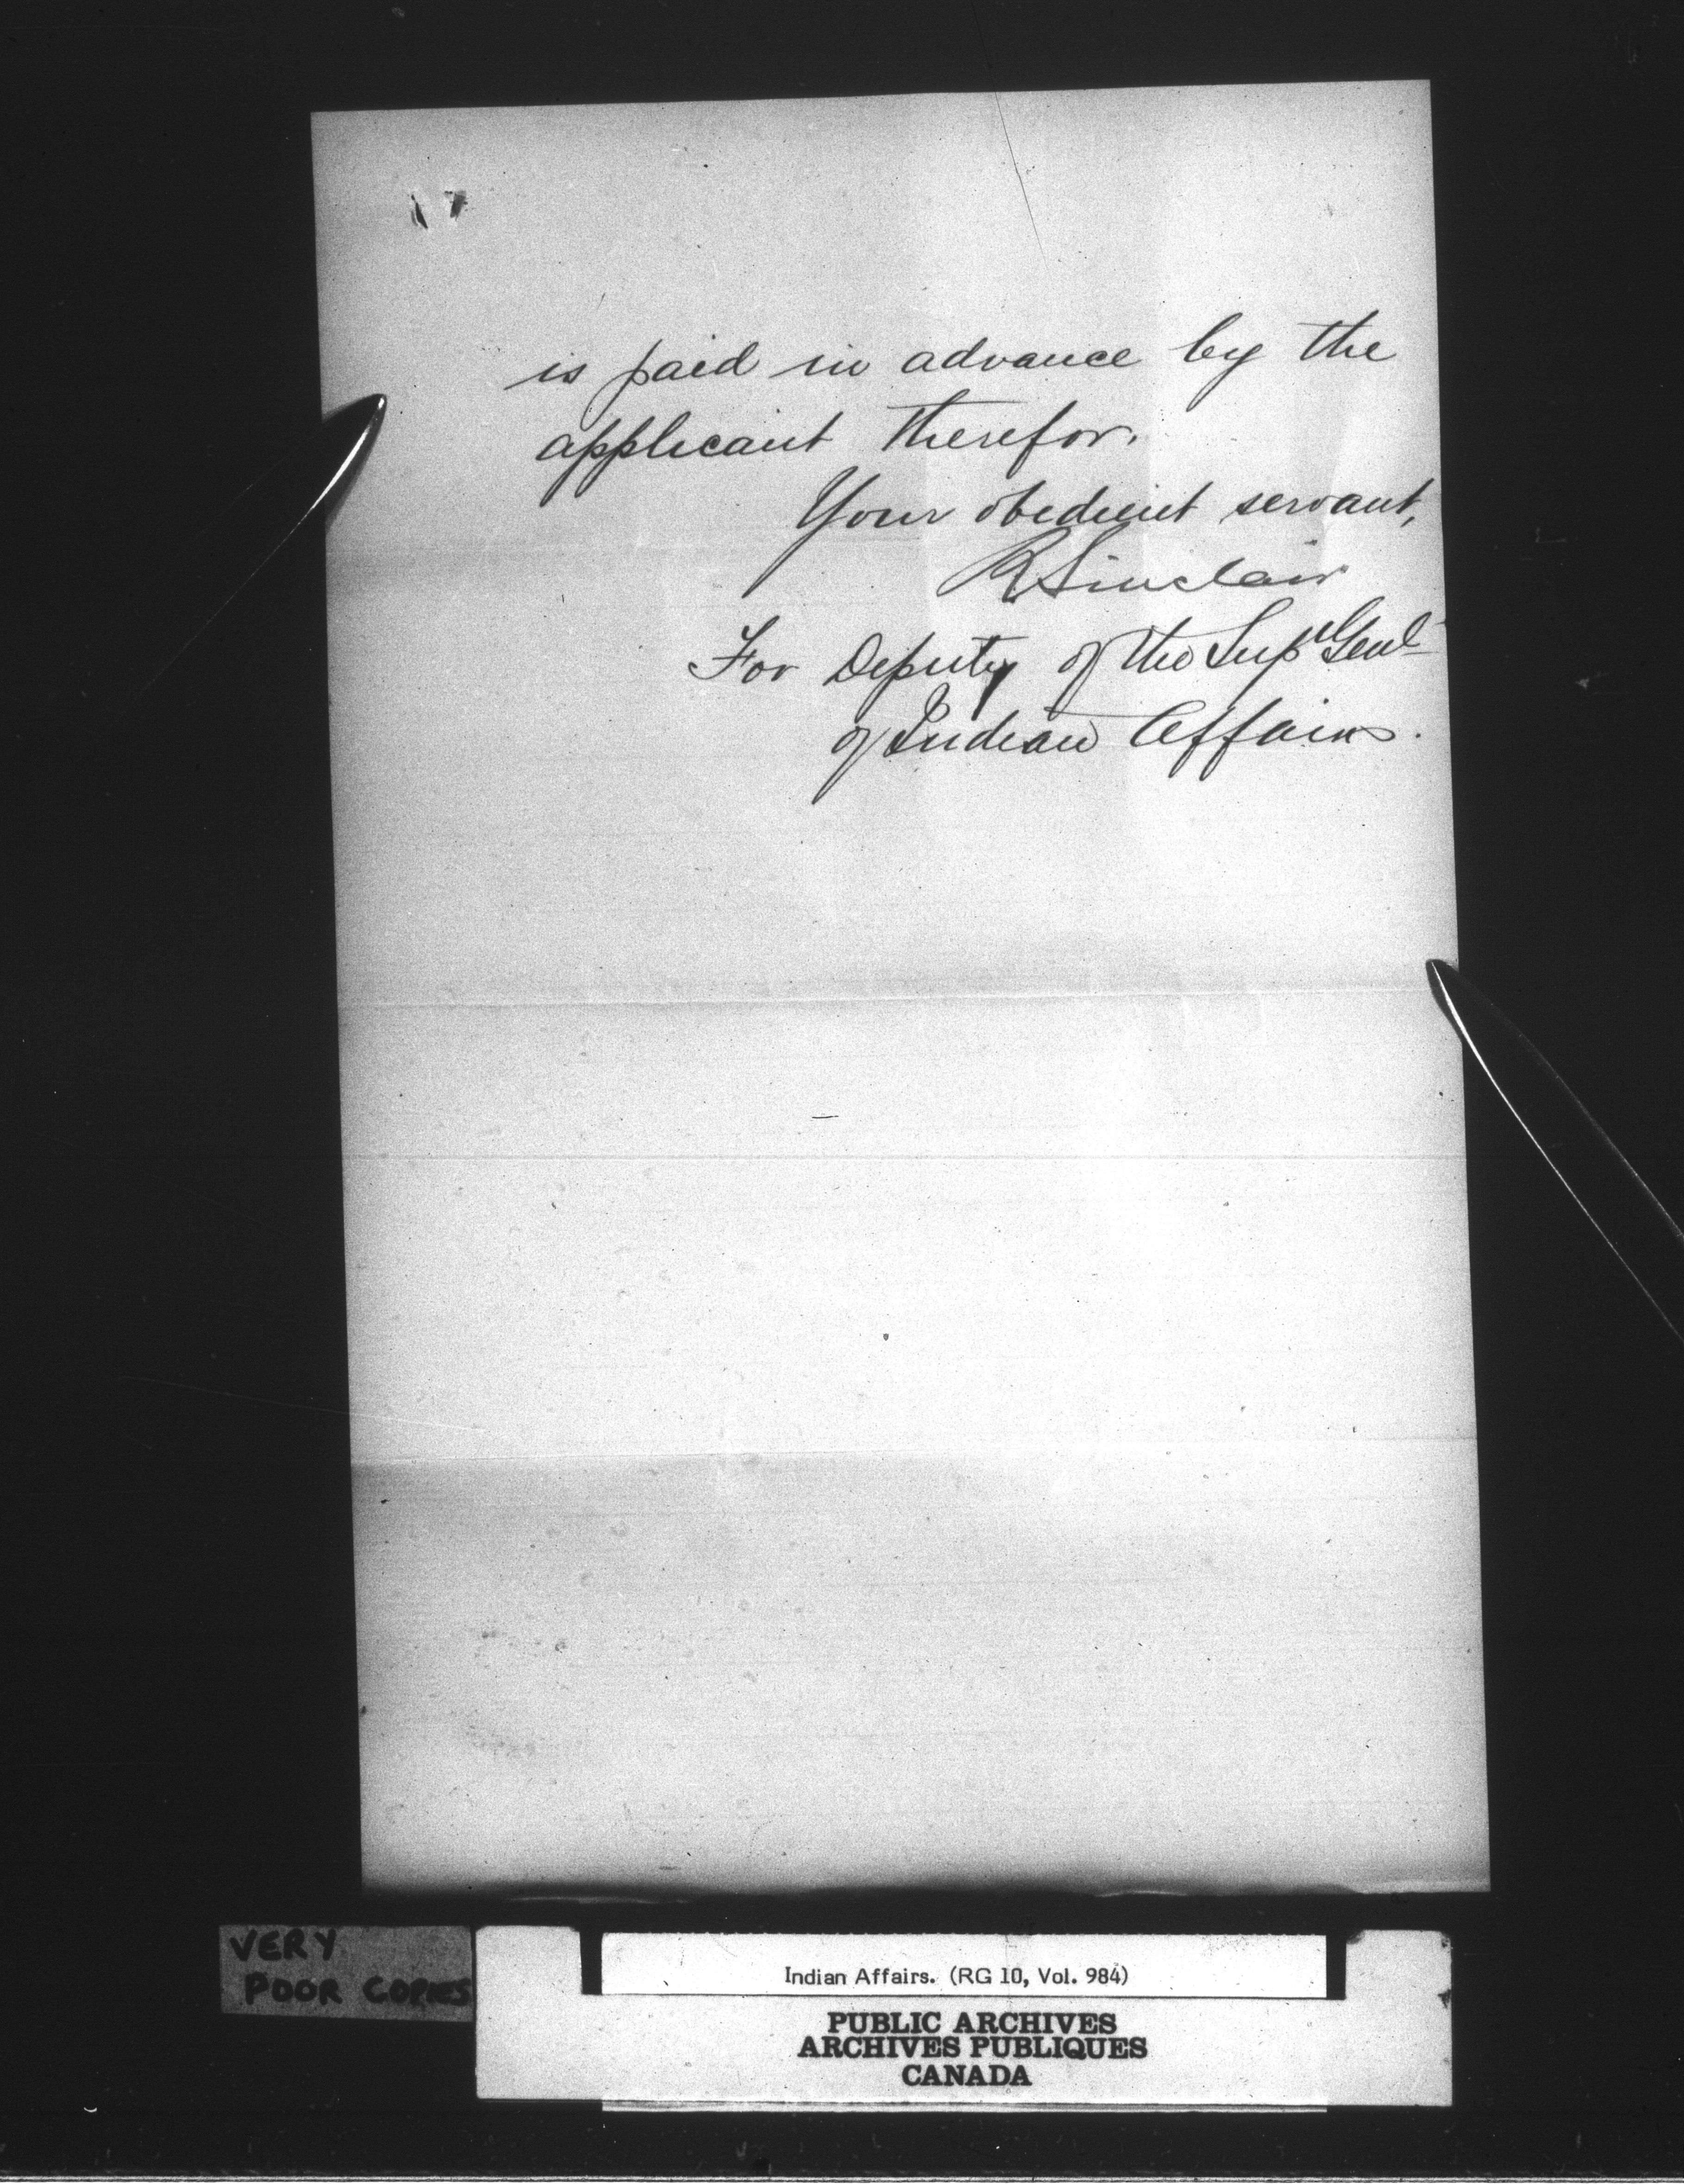 is paid in advance by the
applicant therefor.
Your obedient servant,
R Sinclair
For Deputy of the Supt Genl
of Indian Affairs.
VERY
POOR COPIES
Indian Affairs. (RG 10, Vol. 984)
PUBLIC ARCHIVES
ARCHIVES PUBLIQUES
CANADA